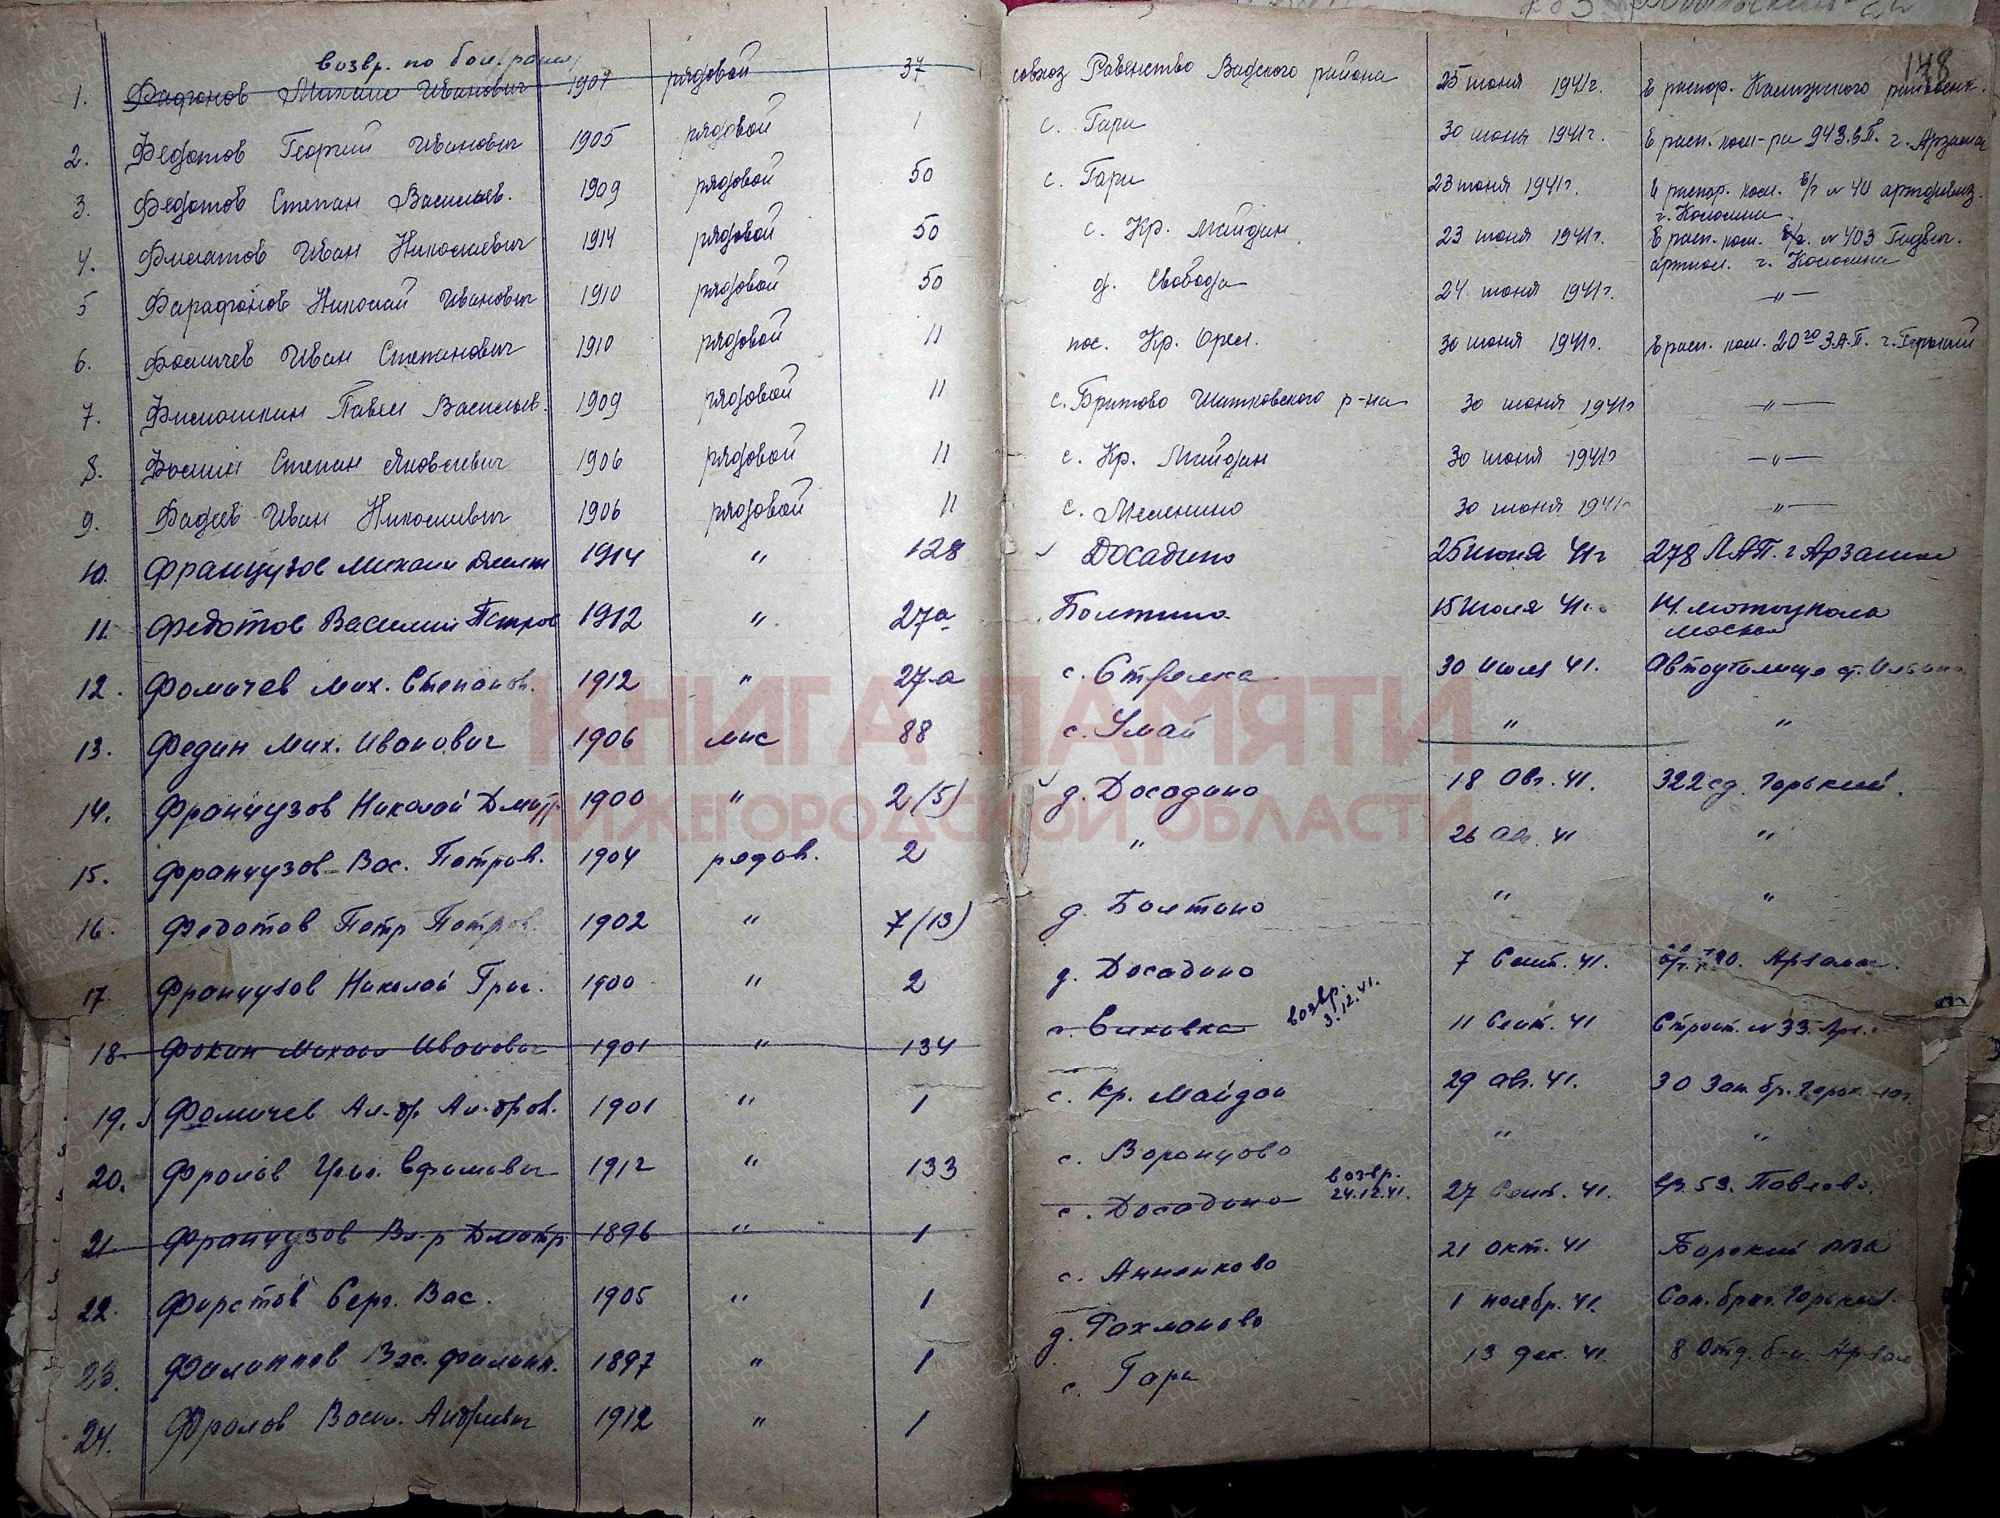 148
возвр. по бол.
1. Фадонов Михаил Иванович 1907 рядовой 37 совхоз Равенство Вадского района 25 июня 1941г. В распор.
2. Федотов Георгий Иванович 1905 рядовой 1 с. Гари 30 июня 1941г. В расп. ком-ра 943. г. Арзамас
3. Федотов Степан Васильев. 1909 рядовой 50 с. Гари 23 июня 1941г. В распор. ком. в/г № 40
г. Коломна
4. Филатов Иван Николаевич 1914 рядовой 50 с. Кр. Майдан 23 июня 1941г. В расп. ком. № 403
г. Коломна
5 Фарафонов Николай Иванович 1910 рядовой 50 д. Свобода 24 июня 1941г. —"—
6. Фомичев Иван Степанович 1910 рядовой 11 пос. Кр. Орел. 30 июня 1941г. В расп. ком. 20го З.А.П. г. Горький
7. Филюшкин Павел Васильев. 1909 рядовой 11 с. Бритово Шатковского р-на 30 июня 1941г —"—
8. Фомин Степан Яковлевич 1906 рядовой 11 с. Кр. Майдан 30 июня 1941г —"—
9. Фадеев Иван Николаевич 1906 рядовой 11 с. 30 июня 1941г —"—
10. Французов Михаил 1914 " 128 Досадино 25 июня 41г 278 Л.А.П. г Арзамас
11. Федотов Василий Петров 1912 " 27а Болтино 15 Июля 41г. 14.
Москва
12. Фомичев Мих. Степанов. 1912 " 27-а с. Стрелка 30 Июля 41. Автоучилище ст.
13. Федин Мих. Иванович 1906 мнс 88 с. Умай " "
14. Французов Николай Дмитр. 1900 " 2(5) д. Досадино 18 Авг. 41. 322 сд. Горький.
15. Французов Вас. Петров. 1904 рядов. 2 " 26 ав. 41 "
16. Федотов Петр Петров. 1902 " 7(13) д. Болтино " "
17. Французов Николай Григ. 1900 " 2 д. Досадино 7 Сент. 41. Арзамас.
возвр.
3.12.41.
18. Фокин Михаил Иванович 1901 " 134 11 Сент. 41 Строит. № 33.
19. Фомичев Ал-др Ал-дров. 1901 " 1 с. Кр. Майдан 29 ав. 41. 30 Зап. бр. Горьк.
20. Фролов Ефимович 1912 " 133 с. Воронцово " "
возвр.
24.12.41.
21 Французов Вл-р Дмитр. 1896 " 1 с. Досадино 27 Сент. 41. 53. Павлово.
22. Фирстов Серг. Вас. 1905 " 1 с. Анненково 21 окт. 41 Борский
23. Филиппов Вас. Филипп. 1897 " 1 д. Рахманово 1 ноябр. 41. Горький.
24. Фролов Васил. Андреевич 1912 " 1 с. Гари 13 дек. 41. 8 Отд. б-н.
КНИГА ПАМЯТИ
НИЖЕГОРОДСКОЙ ОБЛАСТИ